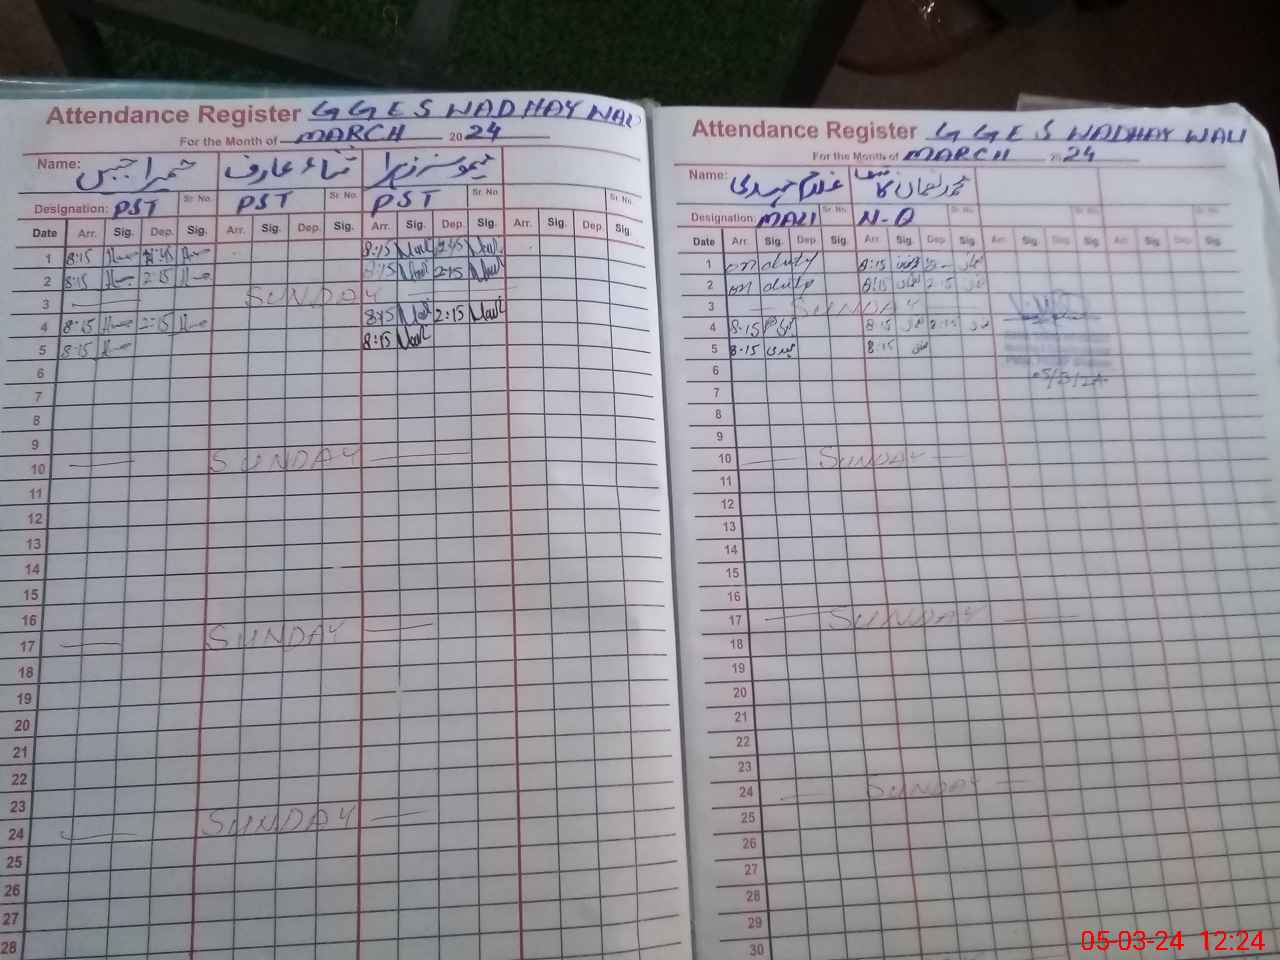 Attendance Register GGES WADHAY WALI
For the Month of MARCH 2024
Name: ثناء عارف
Designation: PST Sr. No. PST PST Sr. No. Sr. No.
Date Arr. Sig. Dep. Sig. Arr. Sig. Dep. Sig. Arr. Sig. Dep. Sig. Arr. Sig. Dep. Sig.
1 8:15 8:15 2:45
2 8:15 2:15 2:15
3 SUNDAY
4 8:15 2:15 8:15 2:15
5 8:15 8:15
6
7
8
9
10 SUNDAY
11
12
13
14
15
16
17 SUNDAY
18
19
20
21
22
23
24 SUNDAY
25
26
27
28
Attendance Register GGES WADHAY WALI
For the Month of MARCH 2024
Name:
Designation: MALI Sr. No. N-Q Sr. No. Sr. No. Sr. No.
Date Arr. Sig. Dep. Arr. Sig. Dep. Sig. Arr. Sig. Dep. Sig. Arr. Sig. Dep. Sig.
1 on duty 8:15
2 on duty 8:15 2:15
3 SUNDAY
4 8-15 8:15 2:15
5 8-15 8:15
6 05/3/24
7
8
9
10 SUNDAY
11
12
13
14
15
16
17 SUNDAY
18
19
20
21
22
23
24 SUNDAY
25
26
27
28
29
30
05-03-24 12:24